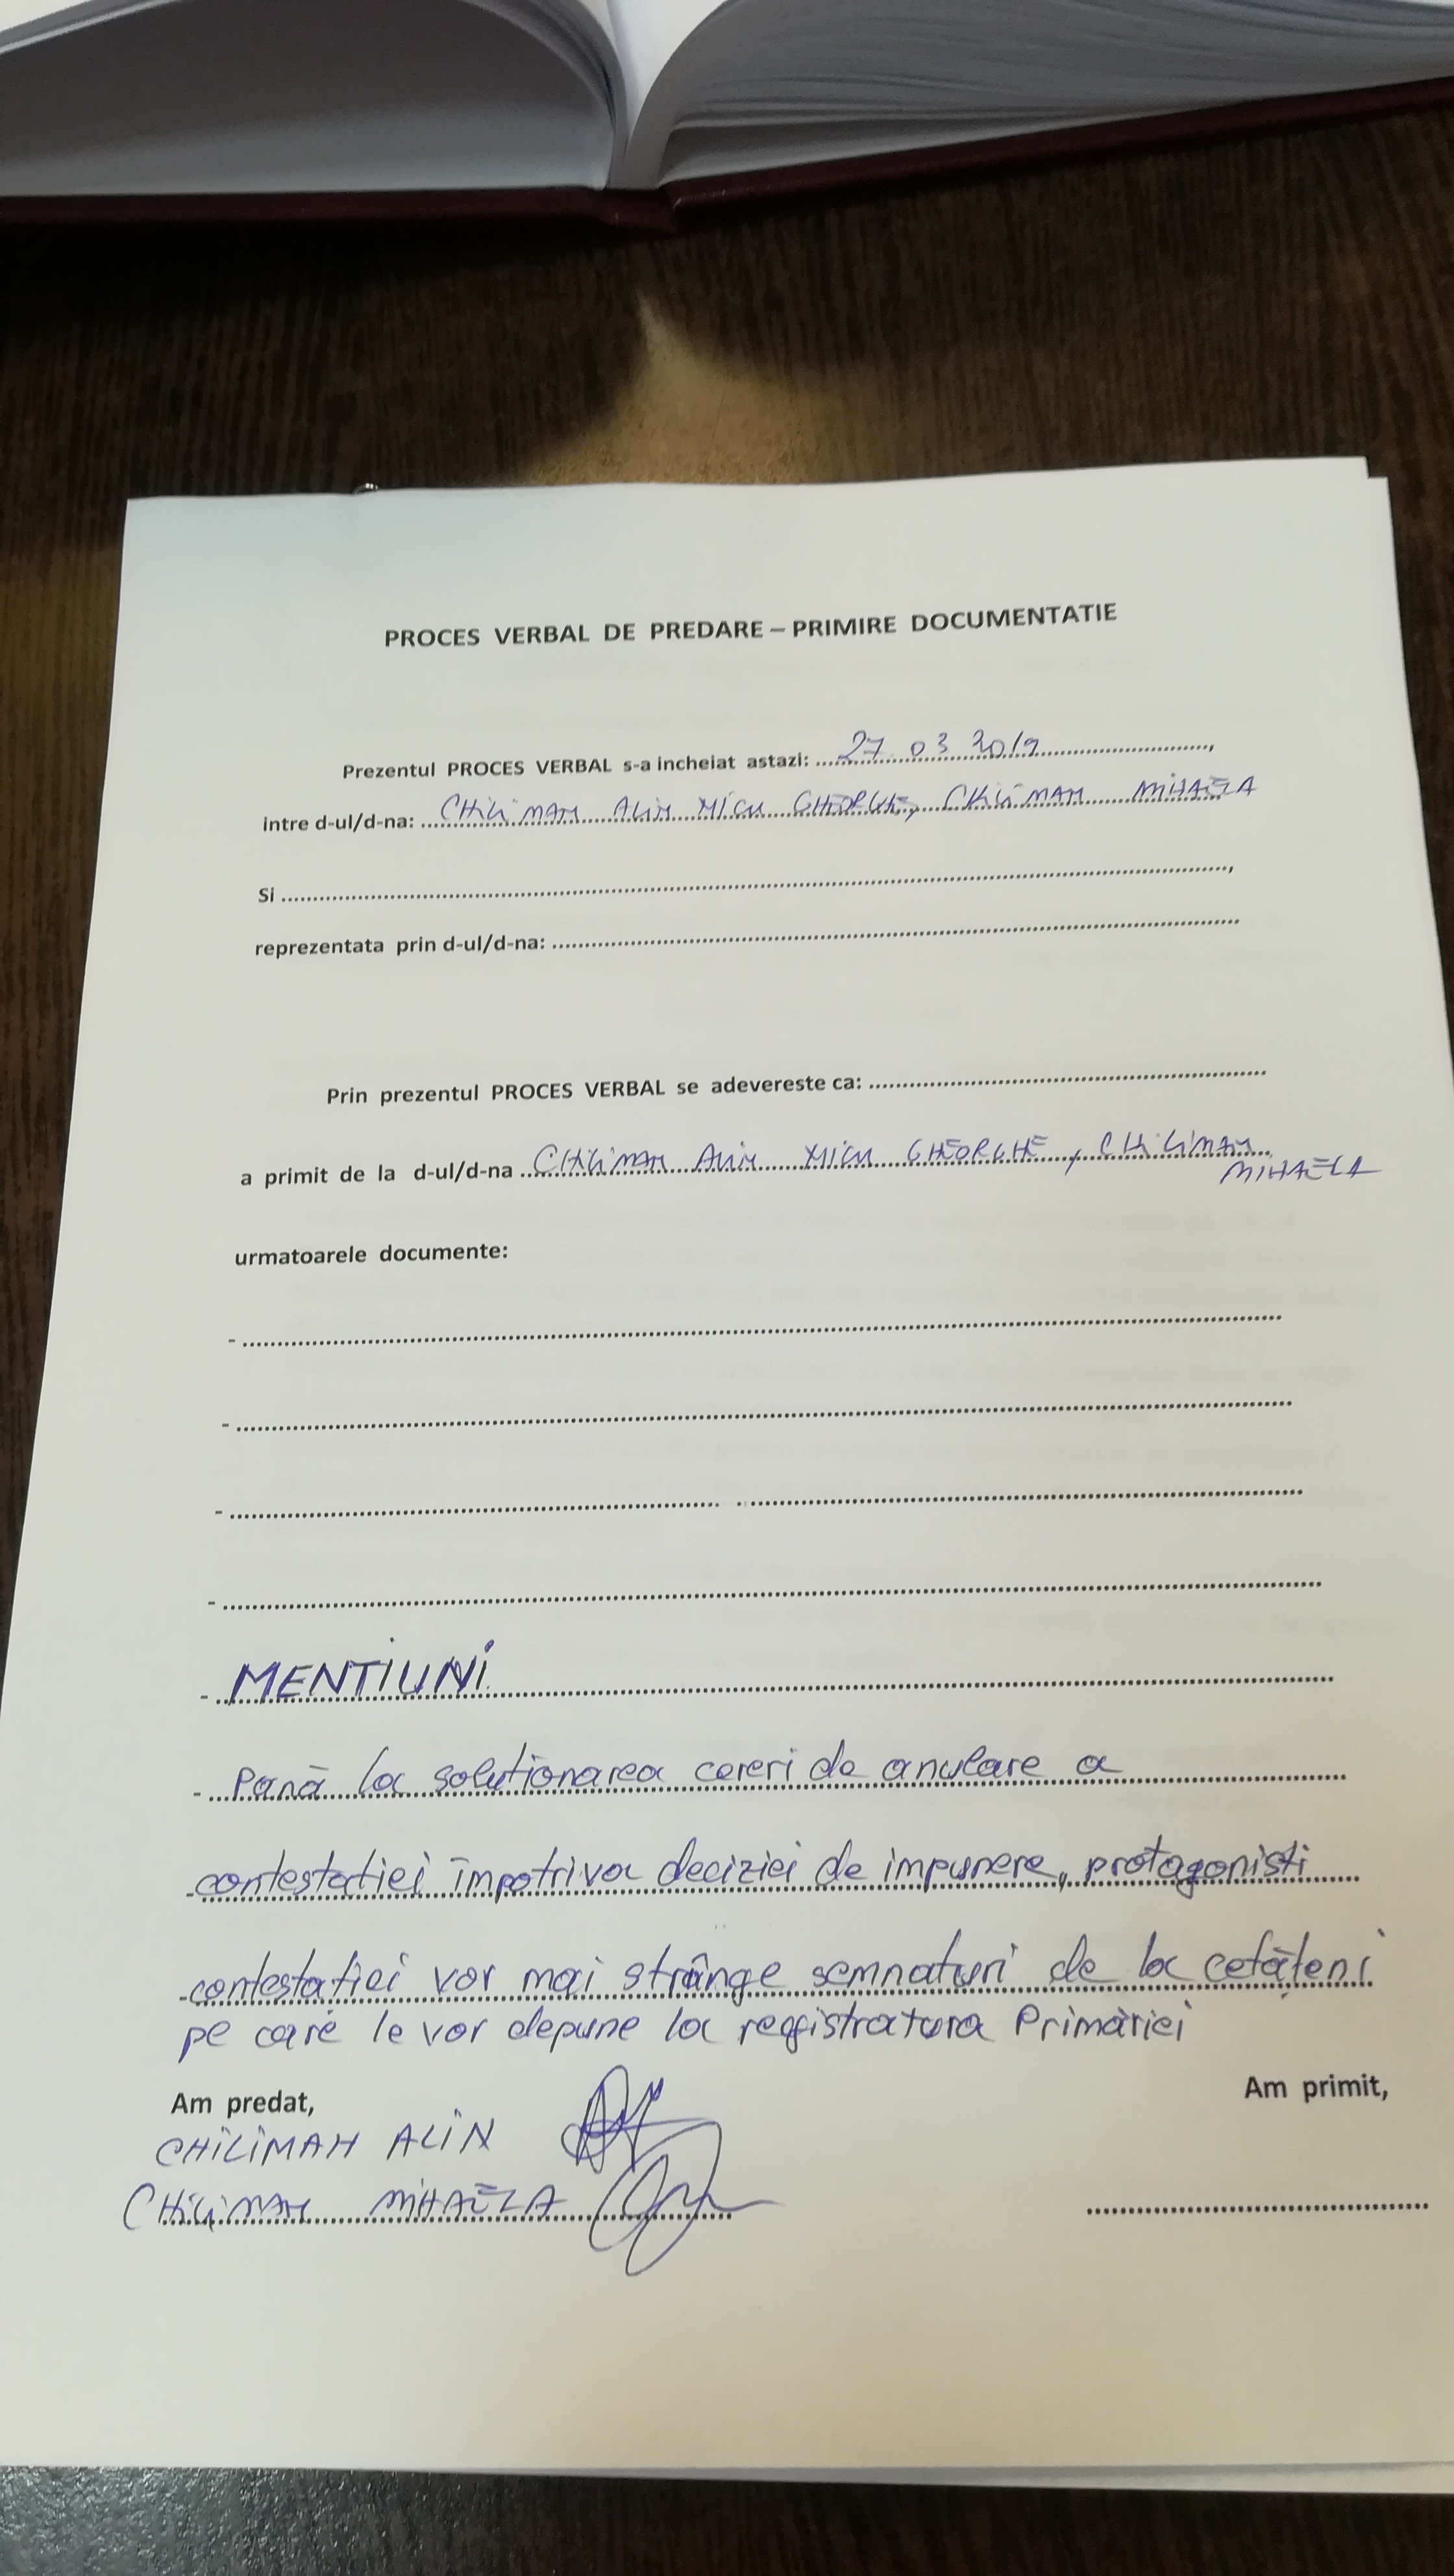 PROCES VERBAL DE PREDARE – PRIMIRE DOCUMENTATIE
Prezentul PROCES VERBAL s-a incheiat astazi: 27 03 2019,
intre d-ul/d-na: CHILIMAN ALIN MICU GHEORGHE, CHILIMAN MIHAELA
Si ,
reprezentata prin d-ul/d-na:
Prin prezentul PROCES VERBAL se adevereste ca:
a primit de la d-ul/d-na CHILIMAN ALIN MICU GHEORGHE, CHILIMAN
MIHAELA
urmatoarele documente:
-
-
-
-
- MENTIUNI
- Până la soluționarea cereri de anulare a
- contestatiei împotriva deciziei de impunere, protagoniști
- contestației vor mai strânge semnaturi de la cetățeni
pe care le vor depune la registratura Primăriei
Am predat,
Am primit,
CHILIMAN ALIN
CHILIMAN MIHAELA